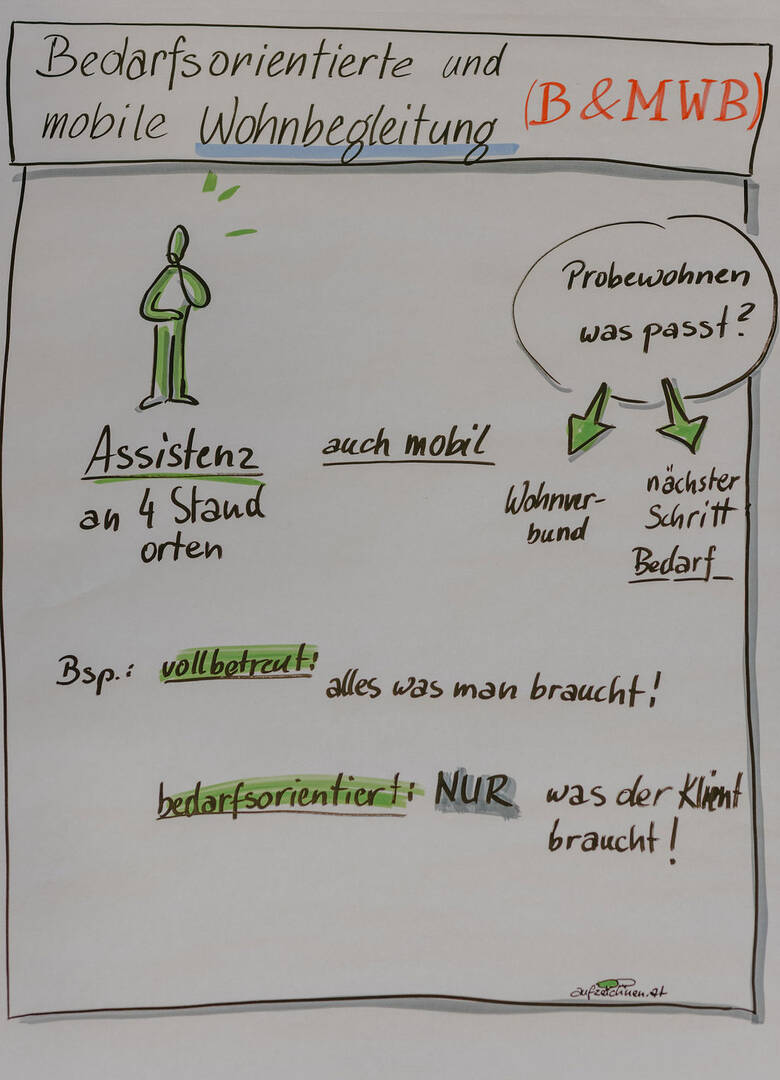 Bedarfsorientierte und
mobile Wohnbegleitung (B & MWB)
Probewohnen
was passt?
Assistenz
an 4 Stand
orten
auch mobil
Wohnver-
bund
nächster
Schritt
Bedarf_
Bsp.: vollbetreut:
alles was man braucht!
bedarfsorientiert: NUR was der Klient
braucht!
aufzeichnen.at